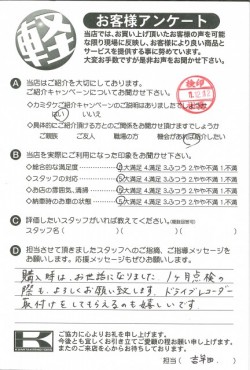 軽
お客様アンケート
当店では、お買い上げ頂いたお客様の声を可能
な限り現場に反映し、お客様により良い商品と
サービスを提供する事に努めています。
大変お手数ですが是非お声をお聞かせ下さい。
A 当店はご紹介を大切にしております。
ご紹介キャンペーンについてお聞かせ下さい。
・カミタケご紹介キャンペーンのご説明はありましたでしょうか
はい いいえ
・具体的にご紹介頂ける方とのご関係をお聞かせ頂けますでしょうか
ご親族 ご友人 職場の方 機会があれば紹介したい
B 当店を実際にご利用になった印象をお聞かせ下さい。
・総合的な満足度 5大満足 4.満足 3.ふつう 2.やや不満 1.不満
・スタッフの対応 5大満足 4.満足 3.ふつう 2.やや不満 1.不満
・お店の雰囲気、清掃 5大満足 4.満足 3.ふつう 2.やや不満 1.不満
・納車時のお車の状態 5大満足 4.満足 3.ふつう 2.やや不満 1.不満
C 評価したいスタッフがいれば教えてください。
スタッフ名( )( )( )
D 担当させて頂きましたスタッフへのご指摘、ご指導メッセージを
お願いします。応援メッセージもぜひお願いします。
購入時は、お世話になりました 1ヶ月点検の
際も、よろしくお願い致します。ドライブレコーダー
取付けをしてもらえるのも嬉しいです。
K
ご協力に心よりお礼を申し上げます。
今後とも宜しくお引き立てご愛顧の程お願い申し上げます。
またのご来店を心からお待ちしております。
担当(